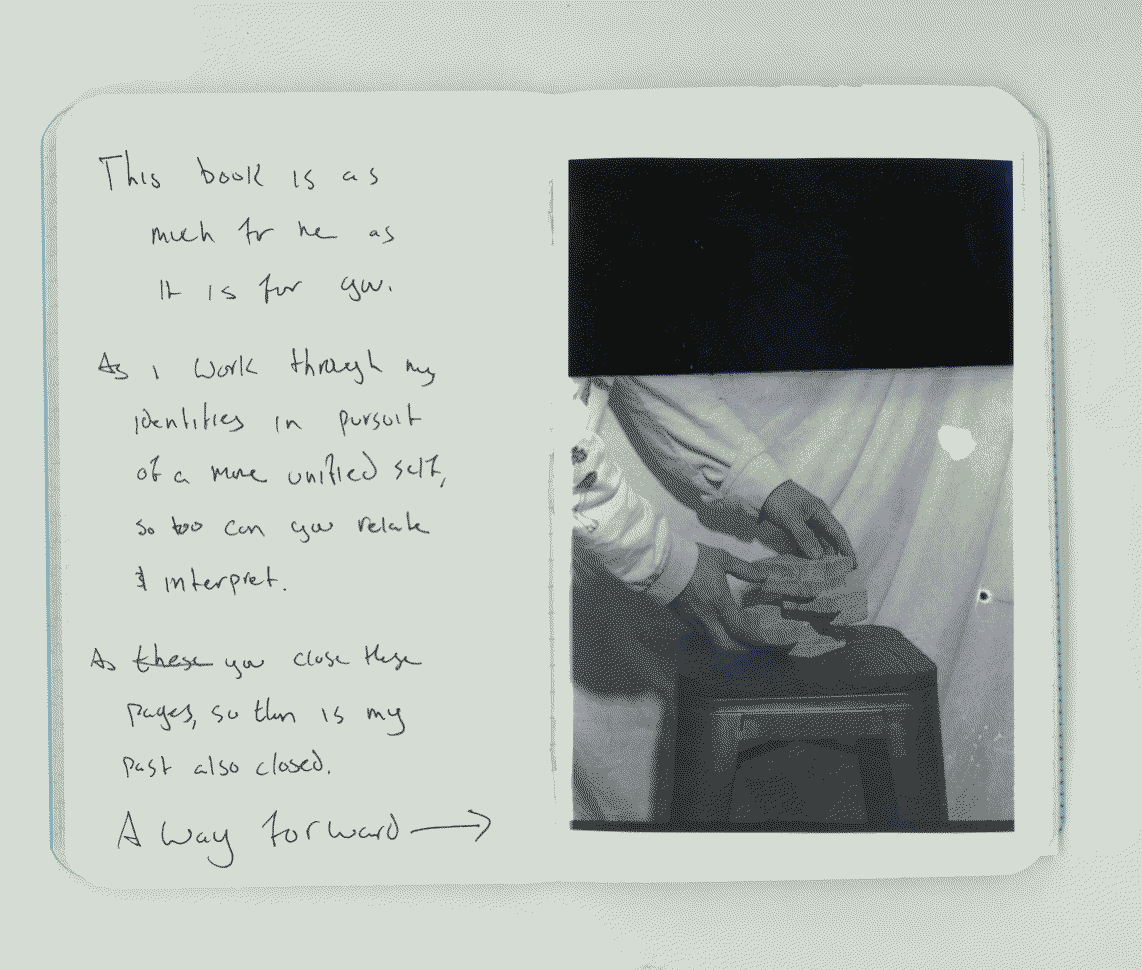 This book is as
much for me as
it is for you.
As i work through my
identities in pursuit
of a more unified self,
so too can you relate
& interpret.
As these you close these
pages, so then is my
past also closed.
A way forward →